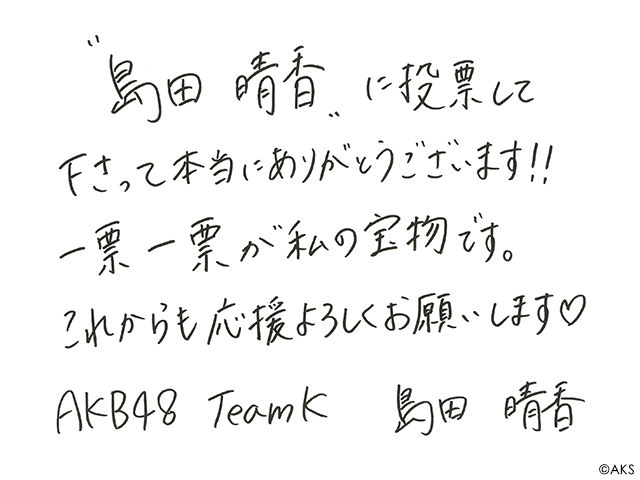 "島田 晴香"に投票して
下さって本当にありがとうございます!!
一票一票が私の宝物です。
これからも応援よろしくお願いします♡
AKB48 TeamK 島田 晴香
©AKS